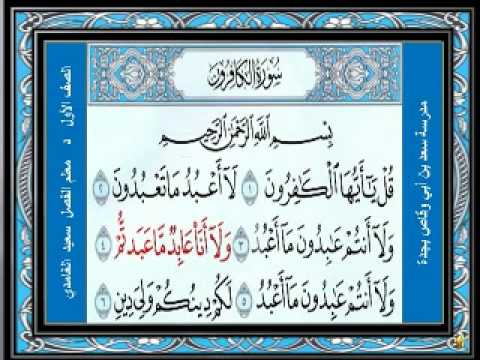 سُورَةُ الكَافِرُونَ
بِسْمِ اللَّهِ الرَّحْمَٰنِ الرَّحِيمِ
قُلْ يَا أَيُّهَا الْكَافِرُونَ ١ لَا أَعْبُدُ مَا تَعْبُدُونَ ٢
وَلَا أَنْتُمْ عَابِدُونَ مَا أَعْبُدُ ٣ وَلَا أَنَا عَابِدٌ مَا عَبَدْتُمْ ٤
وَلَا أَنْتُمْ عَابِدُونَ مَا أَعْبُدُ ٥ لَكُمْ دِينُكُمْ وَلِيَ دِينِ ٦
مدرسة سعد بن أبي وقاص بجدة
الصف الأول د معلم الفصل سعيد الغامدي